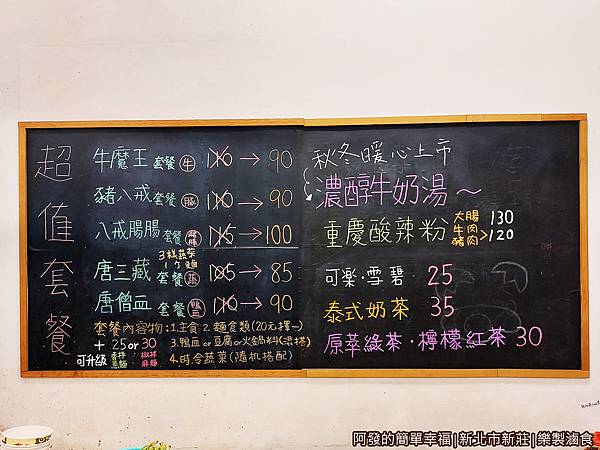 超值套餐
牛魔王 套餐 牛 110→90
豬八戒 套餐 豬 110→90
八戒腸腸 套餐 115→100
3樣蔬菜
1份麵
唐三藏 套餐 蔬 105→85
唐僧血 套餐 110→90
套餐內容物:1.主食 2.麵食類(20元擇一)
3.鴨血or豆腐or火鍋料(混搭)
4.時令蔬菜(隨机搭配)
+25 or 30
可升級
秋冬暖心上市
濃醇牛奶湯~
重慶酸辣粉
大腸 130
牛肉
豬肉>120
可樂·雪碧 25
泰式奶茶 35
原萃綠茶·檸檬紅茶 30
阿發的簡單幸福|新北市新莊|樂製滷食